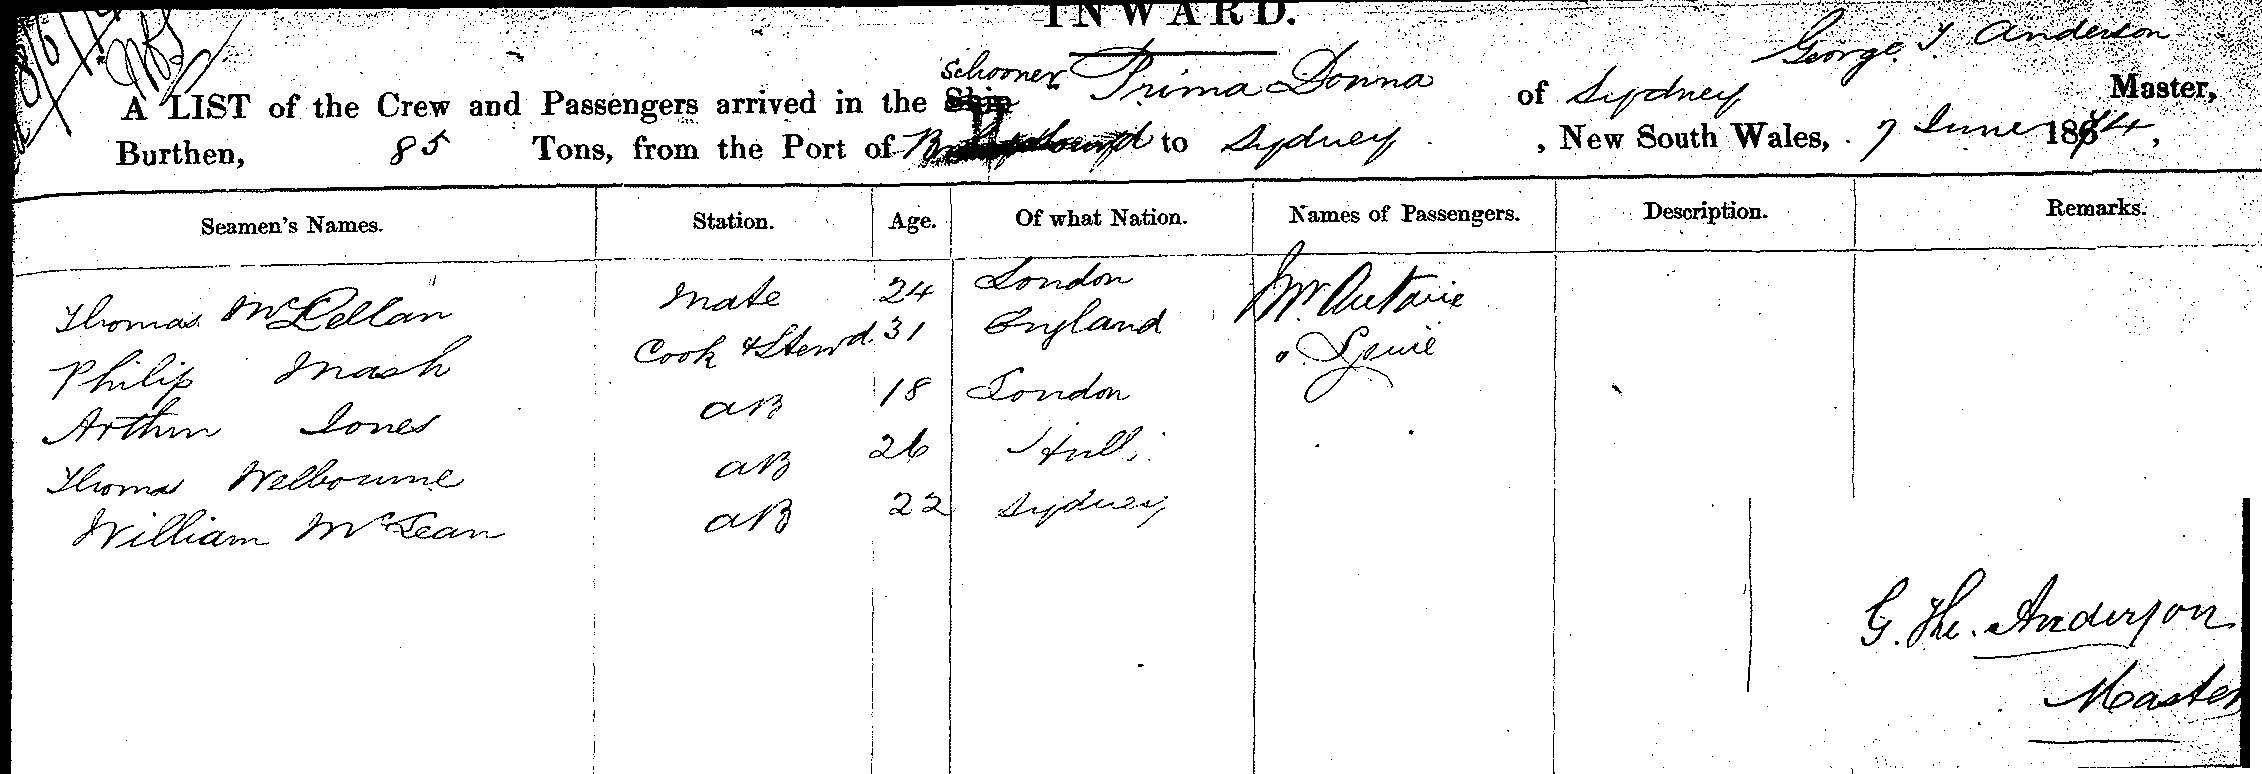 INWARD.
George T Anderson
A LIST of the Crew and Passengers arrived in the Ship Schooner Prima Donna of Sydney Master,
Burthen, 85 Tons, from the Port of to Sydney, New South Wales, 7 June 1874,
Seamen's Names. Station. Age. Of what Nation. Names of Passengers. Description. Remarks.
Thomas McLellan Mate 24 London Mr
Philip Mash Cook & Stewd 31 England
Arthur Jones AB 18 London
Thomas Welbourne AB 26 Hull
William McLean AB 22 Sydney
G. Tho. Anderson
Master